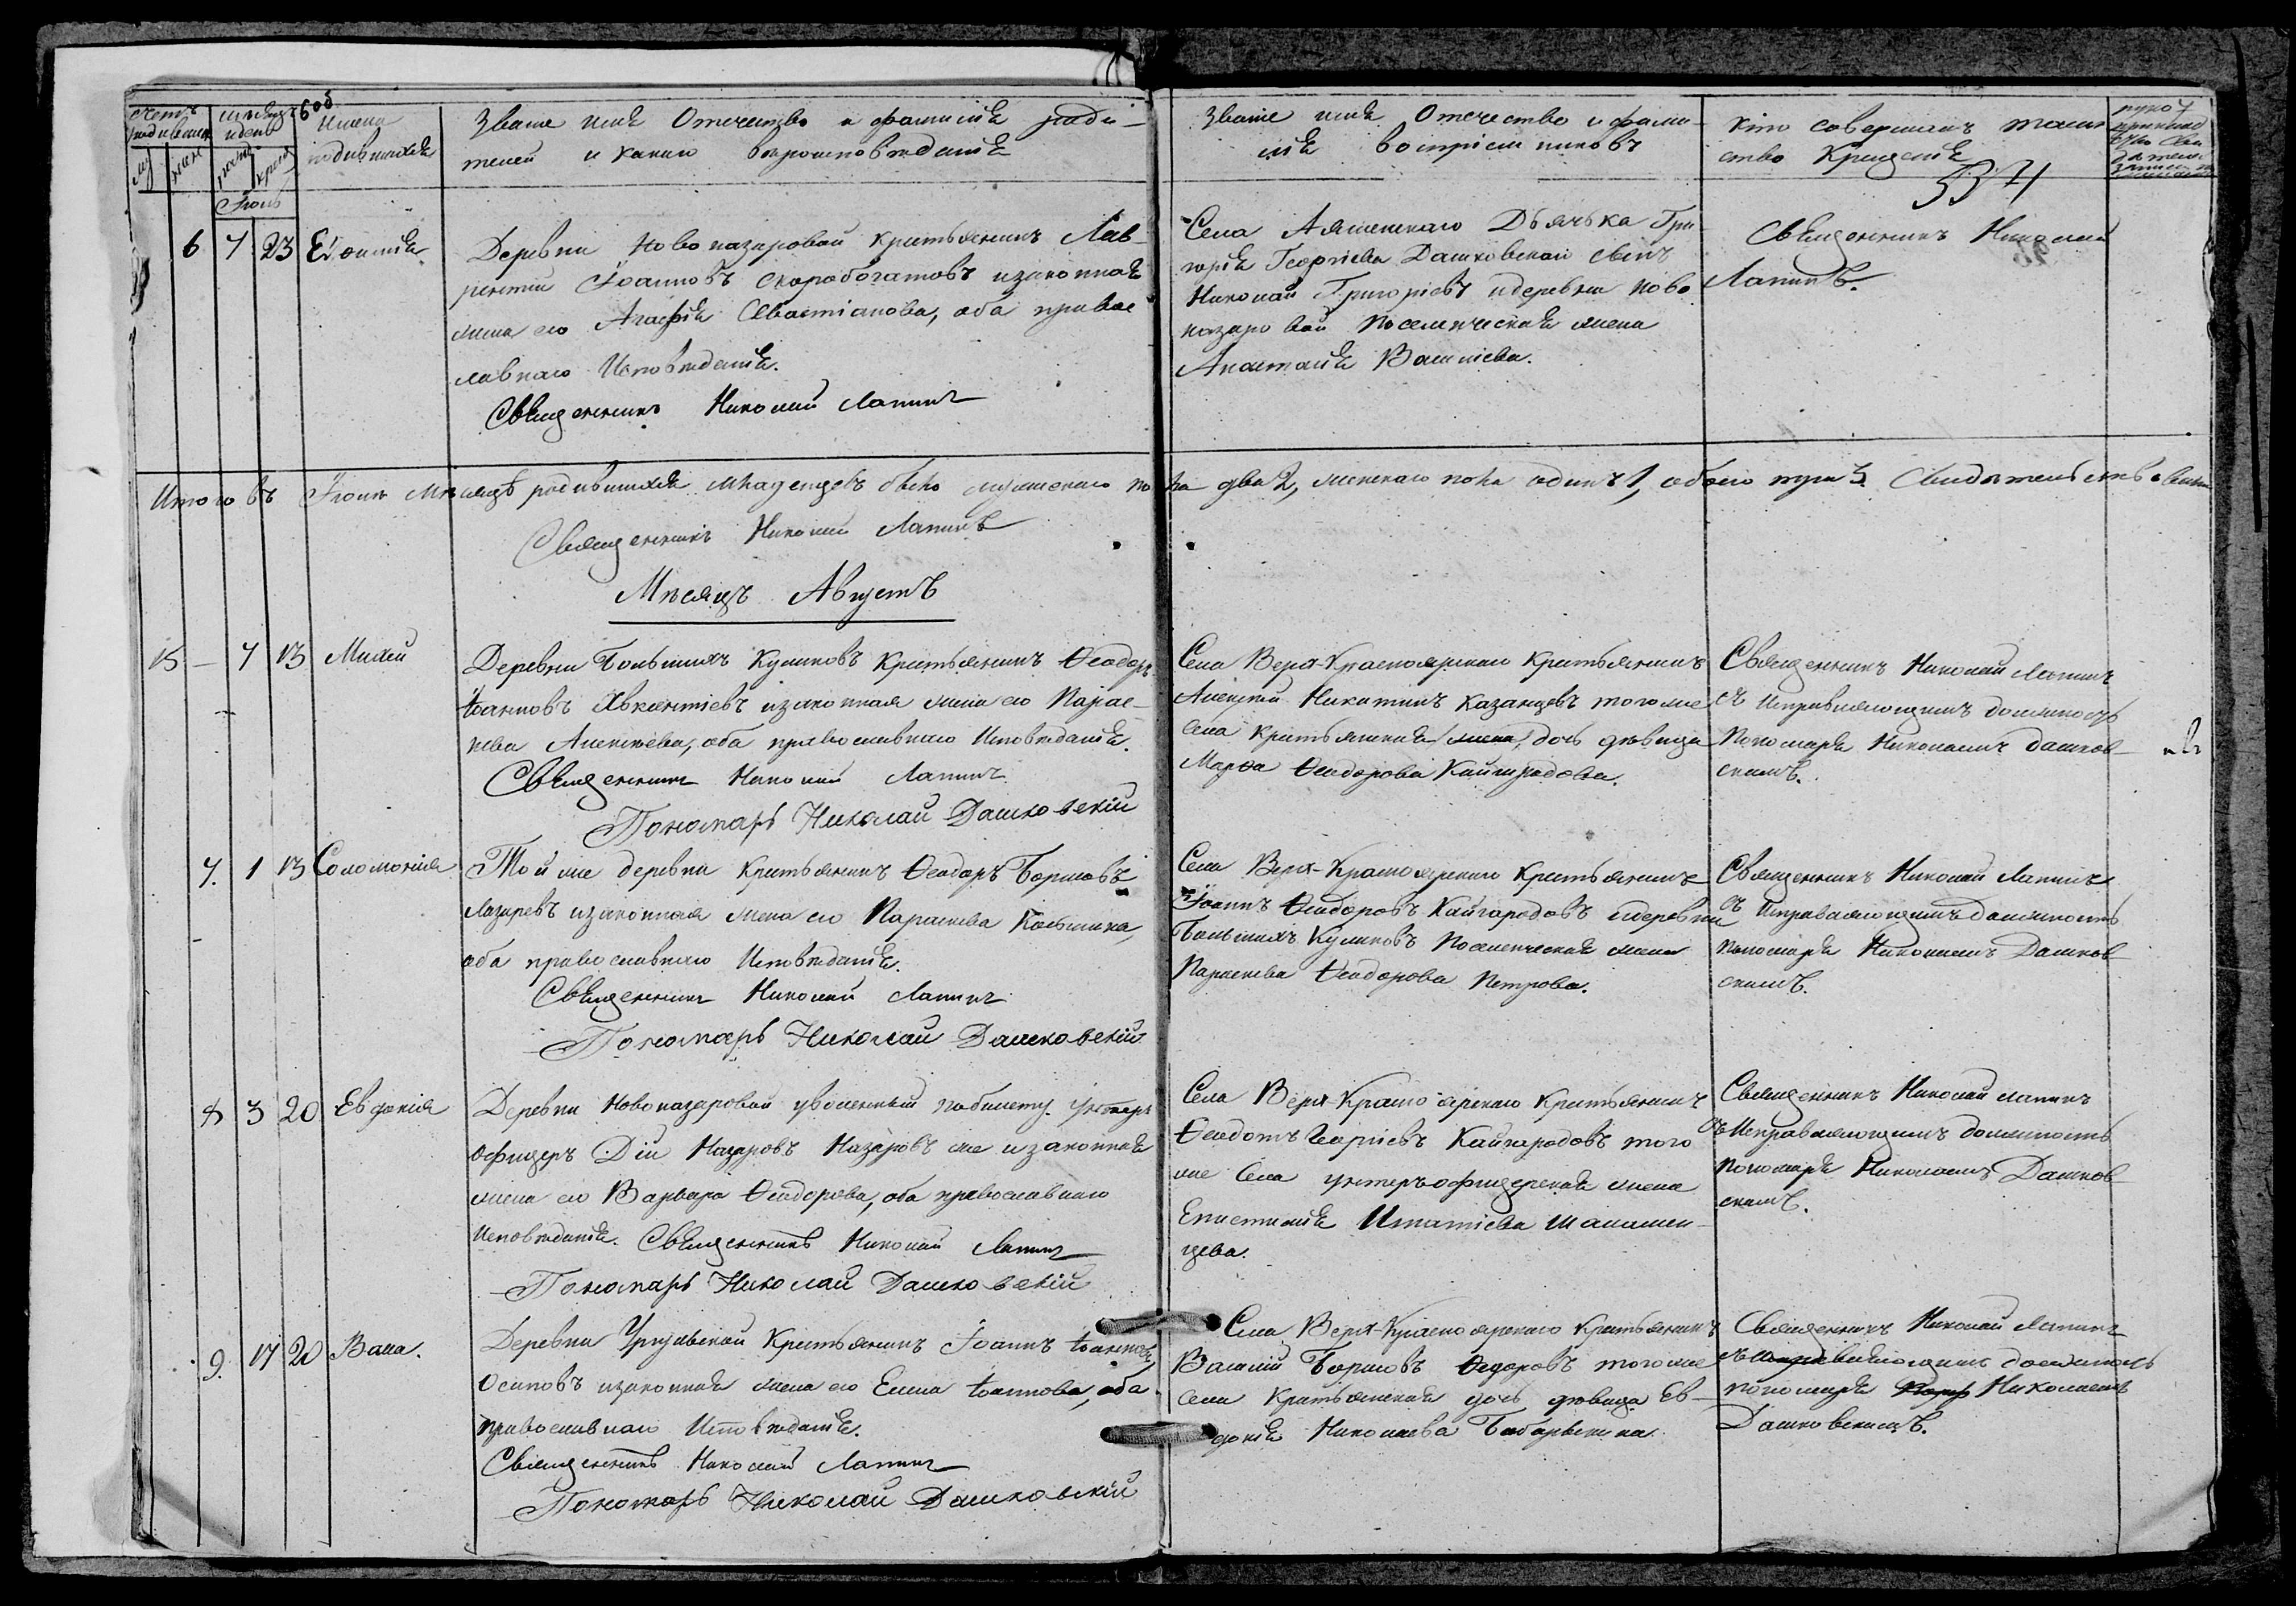 счетъ родившихся
мѣсяцъ и день
Имена родившихся
Званіе имя Отечество и фамилія роди-
телей и какого вѣроисповѣданія
муж
жен
рожд.
крещ
Іюль
6 7 23 Евѳимія
Деревни Новоназаровой крестьянинъ Лав-
рентій Іоанновъ Скоробогатовъ и законная
жена его Агафія Севастіанова, оба право
славнаго Исповѣданія.
Священникъ Николай Лапинъ
Званіе имя Отечество и фами-
лія воспріемниковъ
Кто совершалъ таин
ство Крещенія
534
Села Аяшенскаго Дьячька Гри
горія Георгіева Дашковской сынъ
Николай Григоріевъ и деревни Ново
назаровой Поселенческая жена
Анастасія Васильева.
Священникъ Николай
Лапинъ.
Итого въ Іюлѣ Мѣсяцѣ родившихся младенцевъ было мужескаго пола два 2, женскаго пола одинъ 1, обоего три 3.
Священникъ Николай Лапинъ
Мѣсяцъ Августъ
15 – 7 13 Михей
Деревни Большихъ Куликовъ Крестьянинъ Ѳеодоръ
Іоанновъ и законная жена его Парас-
кева Алексѣева, оба православнаго Исповѣданія.
Священникъ Николай Лапинъ
Пономарь Николай Дашковскій
Села Верх-Красноярскаго Крестьянинъ
Алексѣй Никитинъ Казанцевъ того же
села крестьянская жена, дочь дѣвица
Марѳа Ѳеодорова Кайгородова.
Священникъ Николай Лапинъ
съ Исправляющимъ должность
Пономаря Николаемъ Дашков-
скимъ.
7. 1 13 Соломонія
Той же деревни Крестьянинъ Ѳеодоръ Борисовъ
Лазаревъ и законная жена его Параскева Козьмина,
оба православнаго Исповѣданія.
Священникъ Николай Лапинъ
Пономарь Николай Дашковскій
Села Верх-Красноярскаго Крестьянинъ
Іоаннъ Ѳеодоровъ Кайгородовъ и деревни
Большихъ Куликовъ Поселенческая жена
Параскева Ѳеодорова Петрова.
Священникъ Николай Лапинъ
съ Исправляющимъ должность
Пономаря Николаемъ Дашков-
скимъ.
8 3 20 Евдокія
Деревни Новоназаровой уволенный по билету Унтеръ
офицеръ Дій Назаровъ Назаровъ же и законная
жена его Варвара Ѳеодорова, оба православнаго
Исповѣданія. Священникъ Николай Лапинъ
Пономарь Николай Дашковскій
Села Верх-Красноярскаго Крестьянинъ
Ѳеодотъ Георгіевъ Кайгородовъ того
же Села унтеръ-офицерская жена
Епистимія Игнатіева Шаламен-
цева.
Священникъ Николай Лапинъ
съ Исправляющимъ должность
Пономаря Николаемъ Дашков-
скимъ.
9. 17 20 Васса.
Деревни Урюпской Крестьянинъ Іоаннъ Іоанновъ
Осиповъ и законная жена его Елена Іоаннова, оба
православнаго Исповѣданія.
Священникъ Николай Лапинъ
Пономарь Николай Дашковскій
Села Верх-Красноярскаго Крестьянинъ
Василій Борисовъ Ѳедоровъ того же
села Крестьянская дочь дѣвица Ев-
докія Николаева Бобарыкина
Священникъ Николай Лапинъ
съ Исправляющимъ должность
пономаря Николаемъ
Дашковскимъ.